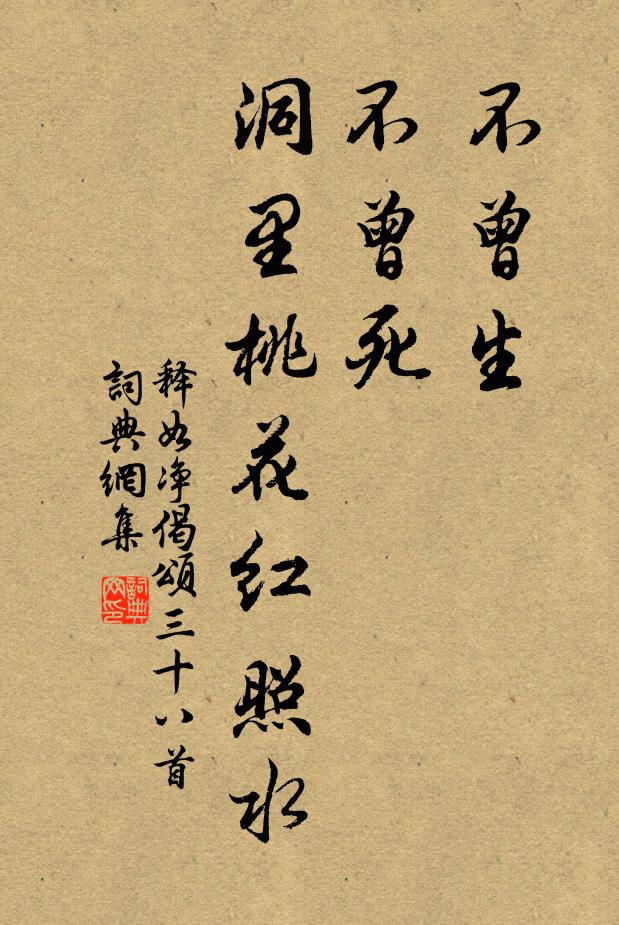 不曾生
不曾死
洞里桃花红照水
释如净偈頌三十八首
詞典網集
詞典网印